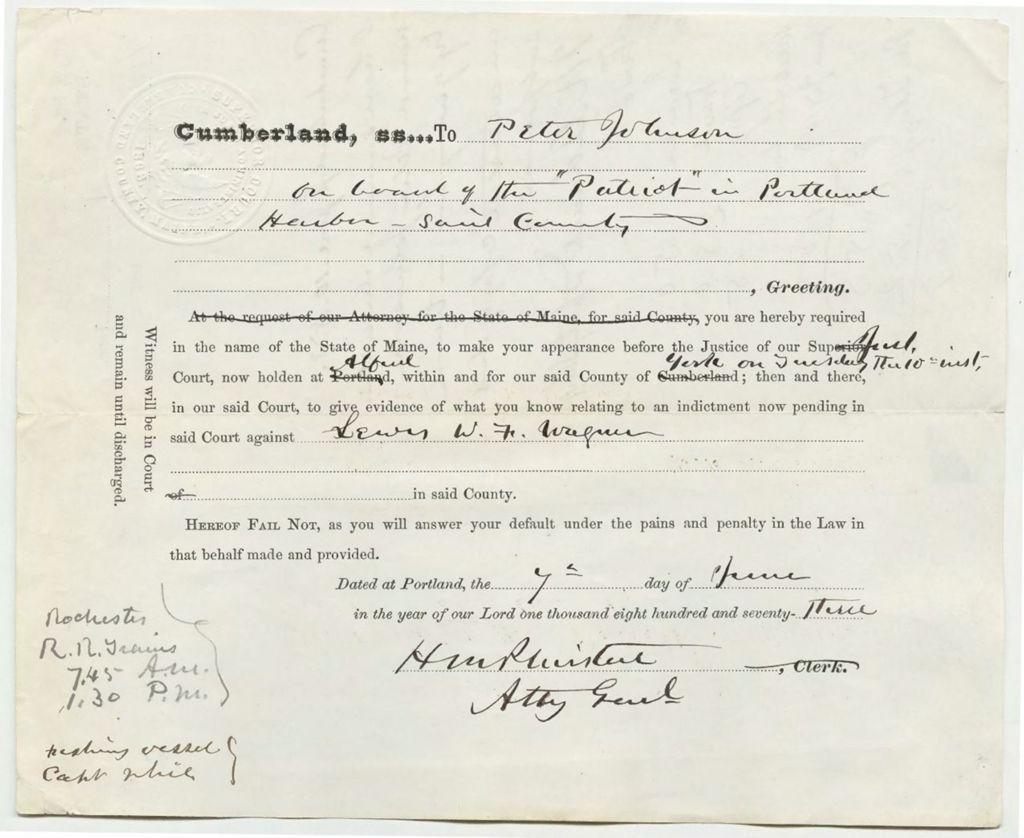 Cumberland, ss...To Peter Johnson
on board of the "Patriot" in Portland
Harbor - said County
, Greeting.
At the request of our Attorney for the State of Maine, for said County, you are hereby required
in the name of the State of Maine, to make your appearance before the Justice of our Superior Jud.
Alfred York on Tuesday the 10th inst,
Court, now holden at Portland, within and for our said County of Cumberland; then and there,
in our said Court, to give evidence of what you know relating to an indictment now pending in
said Court against Lewis W. F. Wagner
of in said County.
HEREOF FAIL NOT, as you will answer your default under the pains and penalty in the Law in
that behalf made and provided.
Dated at Portland, the 7th day of June
in the year of our Lord one thousand eight hundred and seventy- three
, Clerk.
Atty Genl
Witness will be in Court
and remain until discharged.
Rochester
R. R. Trains
7.45 A.M.
1.30 P.M.
Fishing vessel
Capt